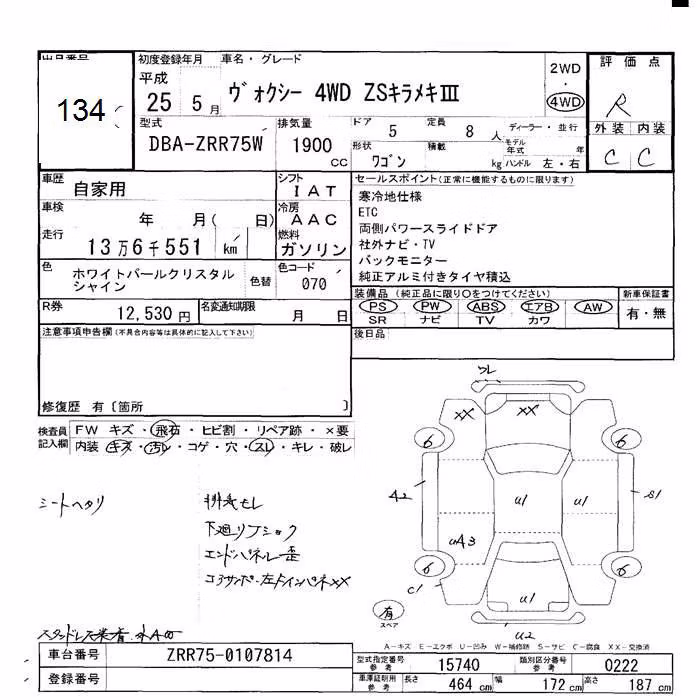 134
初度登録年月 車名・グレード
平成
25 5月
ヴォクシー 4WD ZSキラメキⅢ
2WD
・
4WD
評価点
R
外装 内装
C C
型式
DBA-ZRR75W
排気量
1900 cc
ドア 5 定員 8 人
ディーラー・並行
形状 ワゴン 積載 kg
モデル年式 年
ハンドル 左・右
車歴 自家用
シフト IAT
車検 年 月( 日)
冷房 AAC
走行 13万6千551 km
燃料 ガソリン
セールスポイント(正常に機能するものに限ります)
寒冷地仕様
ETC
両側パワースライドドア
社外ナビ・TV
バックモニター
純正アルミ付きタイヤ積込
色 ホワイトパールクリスタル
シャイン
色替
色コード 070
装備品(純正品に限り○をつけてください)
PS PW ABS エアB AW
SR ナビ TV カワ
新車保証書
有・無
R券 12,530 円
名変通知期限 月 日
注意事項申告欄(不具合内容等は具体的に記入して下さい)
後日品
修復歴 有〔箇所 〕
検査員
記入欄
FW キズ・飛石・ヒビ割・リペア跡・×要
内装 キズ・汚レ・コゲ・穴・スレ・キレ・破レ
シートヘタリ
排気モレ
エンドパネル歪
ズレ
XX XX
6 6
A2 U1 U1 S1
UA3
6 6
C1
U1
U2
有
スペア
A-キズ E-エクボ U-凹み W-補修跡 S-サビ C-腐食 XX-交換済
車台番号 ZRR75-0107814
登録番号
型式指定番号
参考
15740
類別区分番号
参考
0222
車庫証明用
参考
長さ 464 cm 幅 172 cm 高さ 187 cm